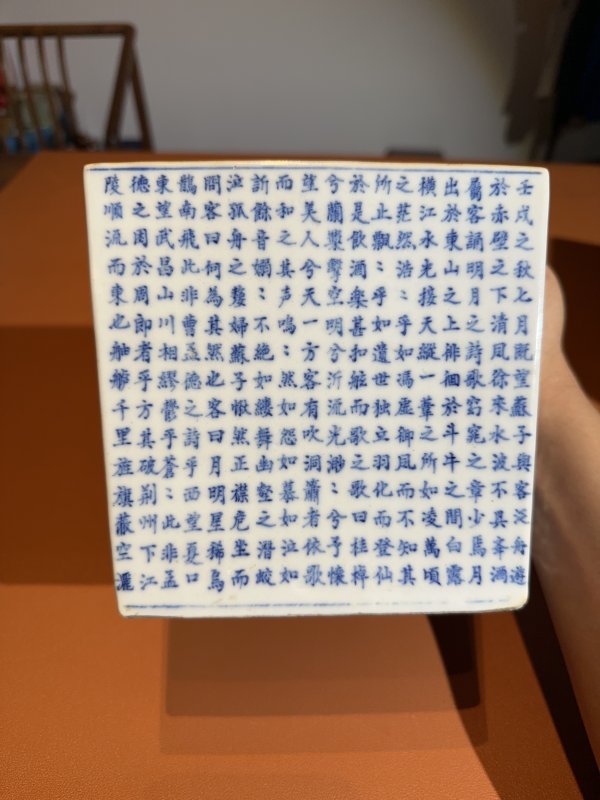 壬戌之秋七月既望蘇子與客泛舟遊
於赤壁之下清風徐來水波不具舉酒
屬客誦明月之詩歌窈窕之章少焉月
出於東山之上徘徊於斗牛之間白露
橫江水光接天縱一葦之所如凌萬頃
之茫然浩〻乎如馮虛御風而不知其
所止飄〻乎如遺世独立羽化而登仙
於是飲酒樂甚扣舷而歌之歌曰桂棹
兮蘭槳擊空明兮泝流光渺〻兮予懷
望美人兮天一方客有吹洞簫者依歌
而和之其声鳴〻然如怨如慕如泣如
訴餘音嫋〻不絕如縷舞幽壑之潛蛟
泣孤舟之嫠婦蘇子愀然正襟危坐而
問客曰何為其然也客曰月明星稀烏
鵲南飛此非曹孟德之詩乎西望夏口
東望武昌山川相繆鬱乎蒼〻此非孟
德之周於周郎者乎方其破荊州下江
陵順流而東也舳艫千里旌旗蔽空灑